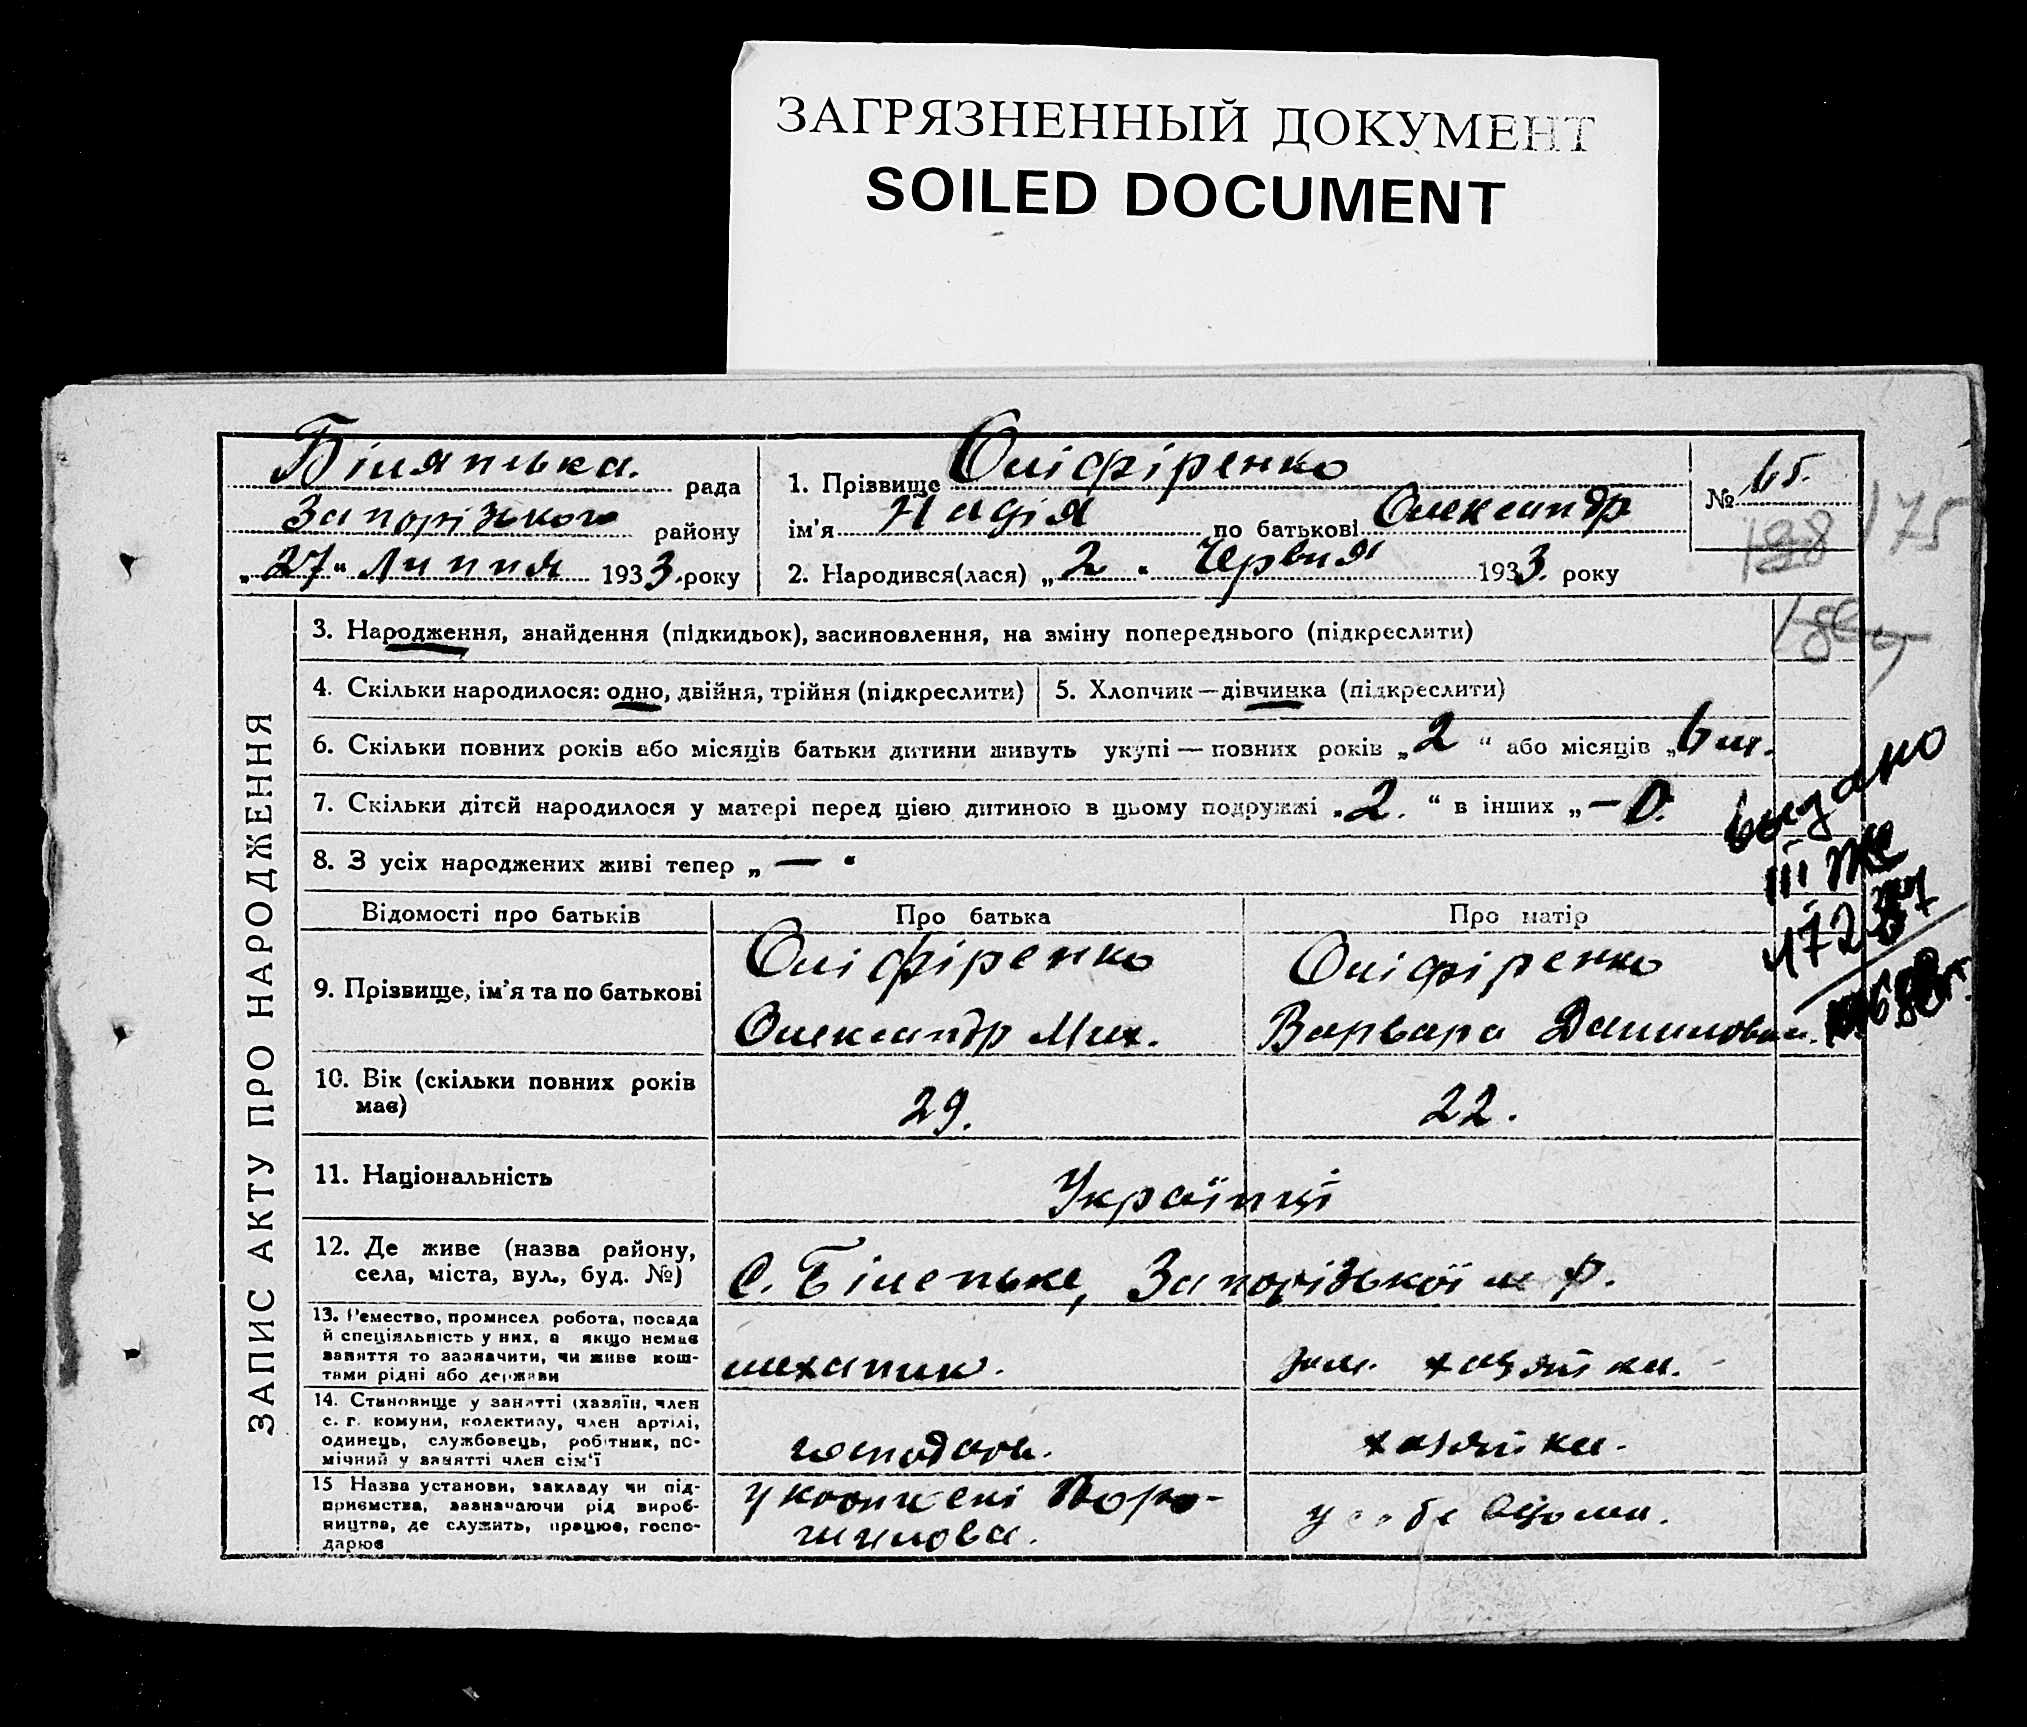 ЗАГРЯЗНЕННЫЙ ДОКУМЕНТ
SOILED DOCUMENT
Біляньська. рада
Запорізького району
„27“ Липня 1933. року
1. Прізвище Оліфіренко
ім'я Надія по батькові Олександр
2. Народився(лася) „2“ Червня 1933. року
№ 65.
198 175
ЗАПИС АКТУ ПРО НАРОДЖЕННЯ
3. Народження, знайдення (підкидьок), засиновлення, на зміну попереднього (підкреслити)
4. Скільки народилося: одно, двійня, трійня (підкреслити)
5. Хлопчик—дівчинка (підкреслити)
6. Скільки повних років або місяців батьки дитини живуть укупі — повних років „2“ або місяців „6 м.
7. Скільки дітей народилося у матері перед цією дитиною в цьому подружжі „2.“ в інших „—0.
8. З усіх народжених живі тепер „—“
выдано
III ЖС
Відомості про батьків Про батька Про матір
9. Прізвище, ім'я та по батькові
Оліфіренко
Олександр Мих.
Оліфіренко
Варвара Даниловна.
10. Вік (скільки повних років має) 29. 22.
11. Національність Українці
12. Де живе (назва району, села, міста, вул., буд. №) С. Біленьке, Запорізької м р.
13. Ремество, промисел, робота, посада
й спеціяльність у них, а якщо немає
заняття то зазначити, чи живе кош-
тами рідні або держави
механик. дом. хазяйка.
14. Становище у занятті (хазяїн, член
с. г. комуни, колективу, член артілі,
одинець, службовець, робітник, по-
мічний у занятті член сім'ї
господарь. хазяйка.
15 Назва установи, закладу чи під-
приємства, зазначаючи рід вироб-
ництва, де служить, працює, госпо-
дарює
у колгоспі Воро-
шилова.
у себе вдома.